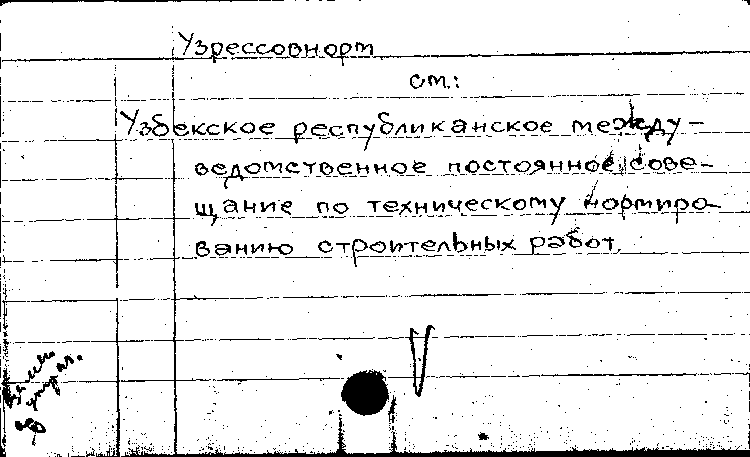 Узрессовнорм
см.:
Узбекское республиканское между-
ведомственное постоянное сове-
щание по техническому нормиро-
ванию строительных работ.